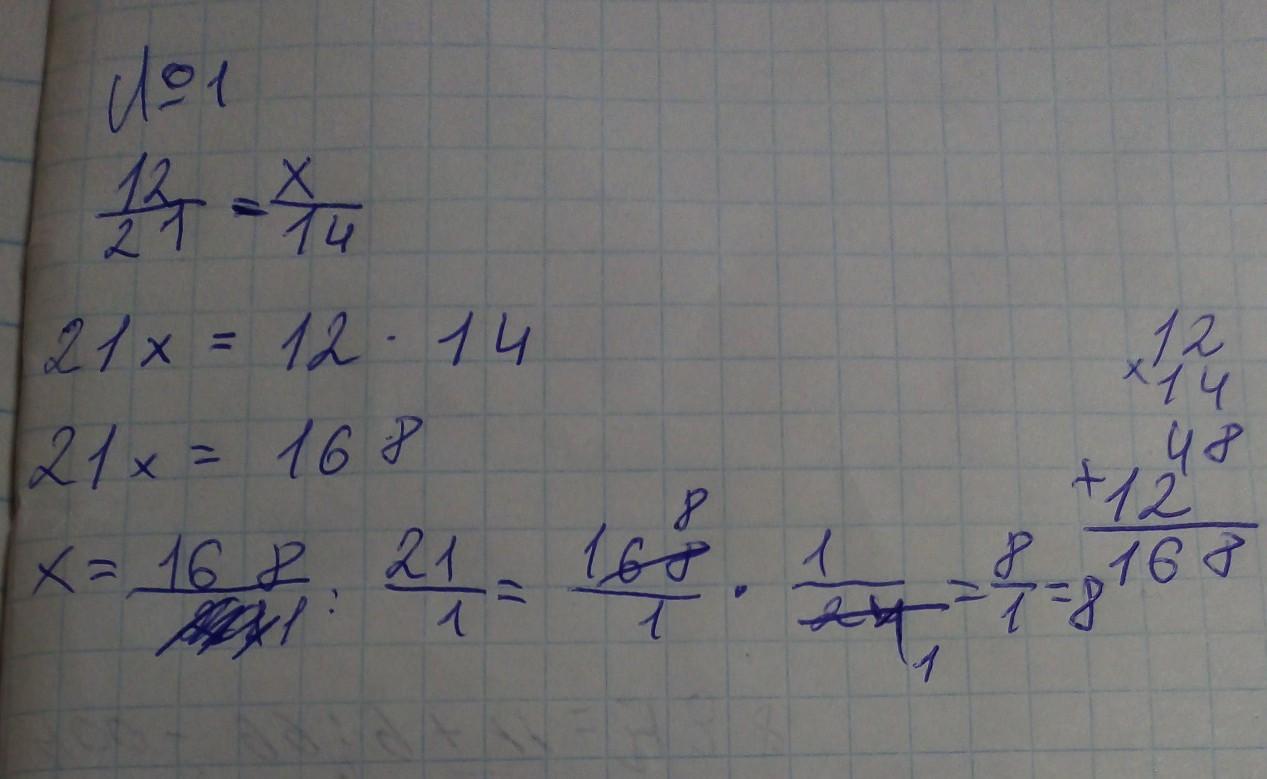 №1
12/21 = x/14
21x = 12 · 14
21x = 168
x = 168/1 : 21/1 = 168/1 · 1/21 = 8/1 = 8
8
1
12
× 14
48
+ 12
168